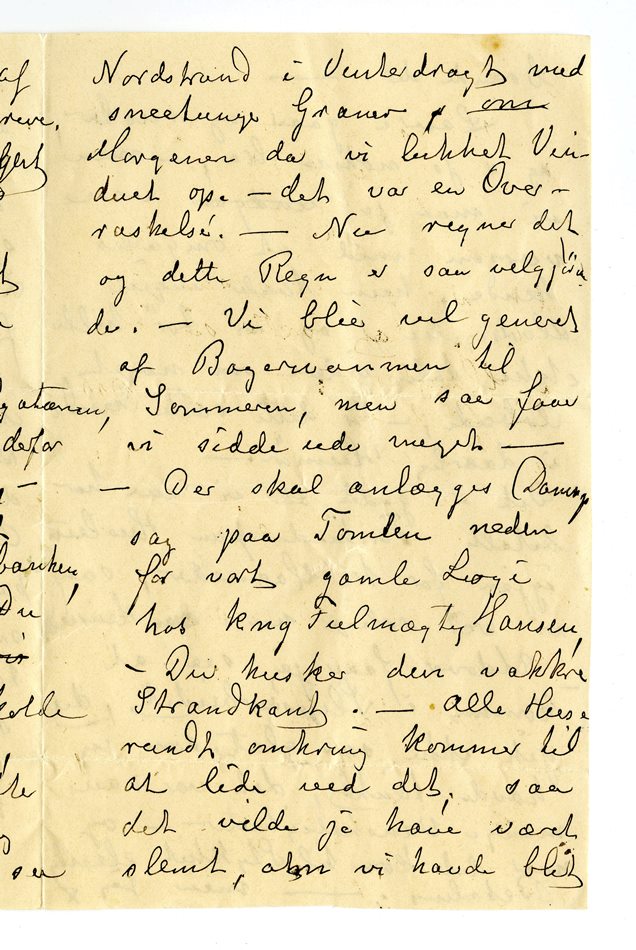 af
Nordstrand i Vinterdragt med
reve.
snetunge Graner, om
Morgenen da vi lukket Vin-
duet op. — det var en Over-
raskelse. — Nu regner det
og dette Regn er saa velgjøren
de. — Vi blir vel generet
af Bagermanmen til
Sommeren, men saa faar
derfor
vi sidde ude meget —
— Der skal anlægges Damp
sag paa Tomten neden
banken,
for vort gamle Logi
Du
hos Kng Fulmægtig Hansen,
— Du husker den vakkre
Strandkant. — Alle Huse
rundt omkring kommer til
at lide ved det, saa
det vilde jo have været
su
slemt, om vi havde blit